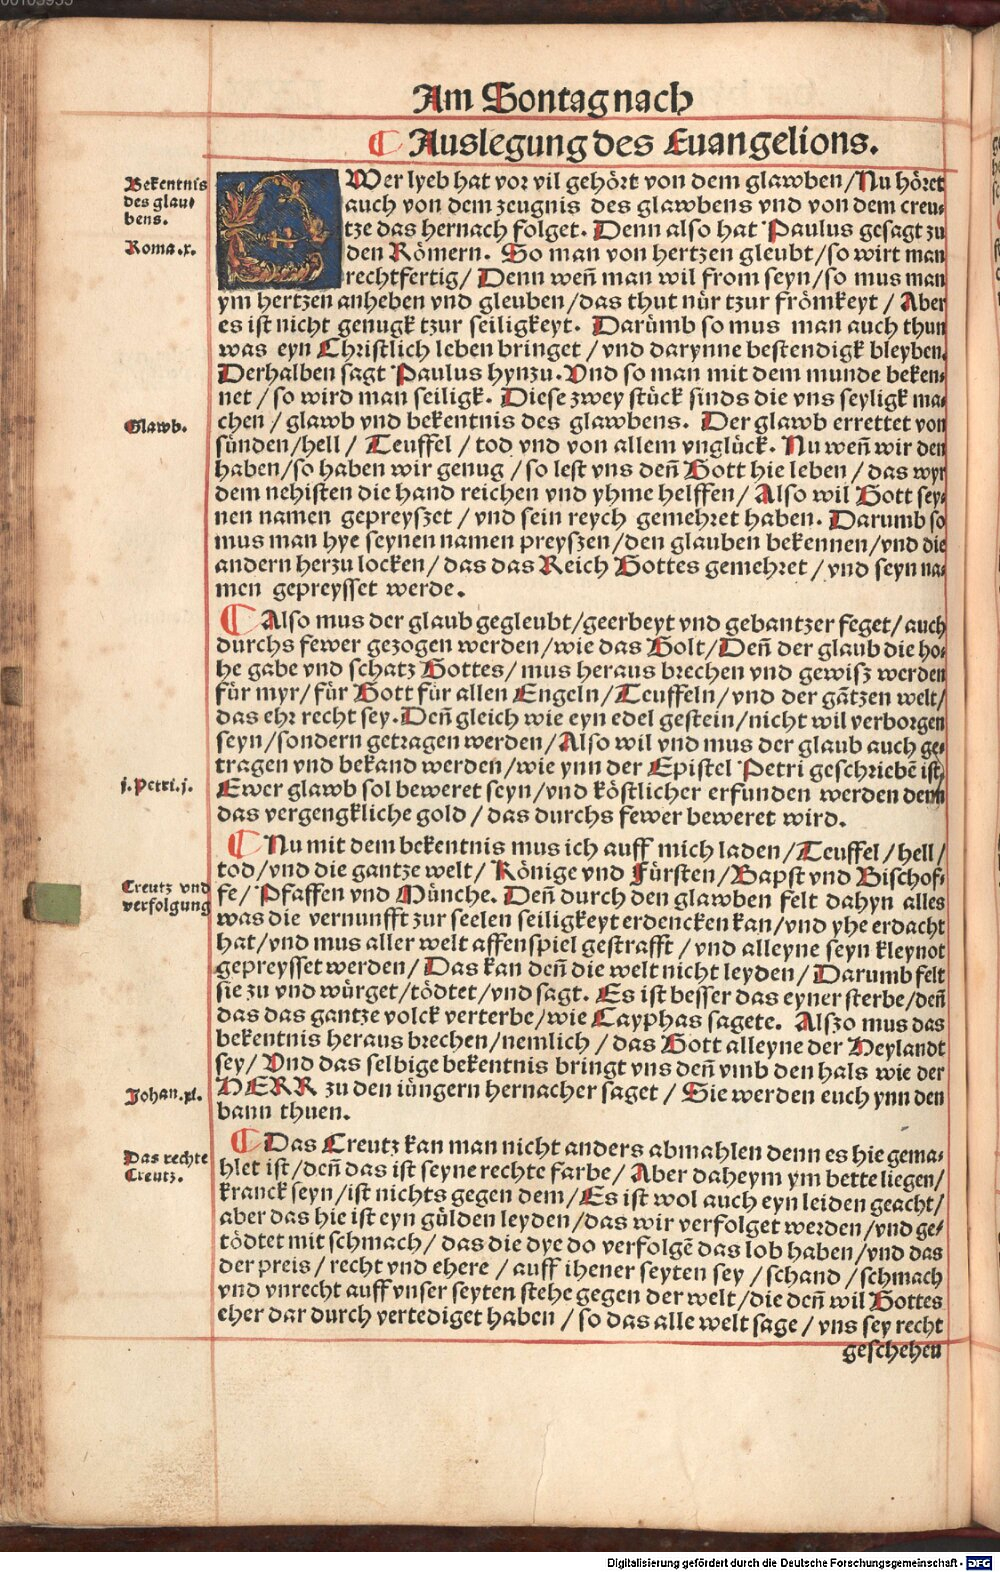 Am Sontag nach
Auslegung des Euangelions.
Bekentnis
des glau⸗
bens.
Roma.x.
EWer lyeb hat vor vil gehört von dem glawben/Nu höret
auch von dem zeugnis des glawbens vnd von dem creu⸗
tze das hernach folget. Denn also hat Paulus gesagt zu
den Römern. So man von hertzen gleubt/so wirt man
rechtfertig/ Denn weñ man wil from seyn/so mus man
ym hertzen anheben vnd gleuben/das thut nür tzur frömkeyt/ Aber
es ist nicht genugk tzur seiligkeyt. Darümb so mus man auch thun
was eyn Christlich leben bringet/vnd darynne bestendigk bleyben.
Derhalben sagt Paulus hynzu. Vnd so man mit dem munde beken⸗
net/so wird man seiligk. Diese zwey stück sinds die vns seyligk ma⸗
Glawb.
chen/glawb vnd bekentnis des glawbens. Der glawb errettet von
sünden/hell/ Teuffel/tod vnd von allem vnglück. Nu weñ wir den
haben/so haben wir genug/so lest vns deñ Gott hie leben/das wyr
dem nehisten die hand reichen vnd yhme helffen/ Also wil Gott sey⸗
nen namen gepreyszet/vnd sein reych gemehret haben. Darumb so
mus man hye seynen namen preyszen/den glauben bekennen/vnd die
andern herzu locken/das das Reich Gottes gemehret/vnd seyn na⸗
men gepreysset werde.
Also mus der glaub gegleubt/geerbeyt vnd gebantzer feget/auch
durchs fewer gezogen werden/wie das Golt/Deñ der glaub die ho⸗
he gabe vnd schatz Gottes/mus heraus brechen vnd gewisz werden
für myr/für Gott für allen Engeln/Teuffeln/vnd der gãtzen welt/
das ehr recht sey. Deñ gleich wie eyn edel gestein/nicht wil verborgen
seyn/sondern getragen werden/Also wil vnd mus der glaub auch ge⸗
tragen vnd bekand werden/wie ynn der Epistel Petri geschriebẽ ist/
j.Petri.j.
Ewer glawb sol beweret seyn/vnd köstlicher erfunden werden denn
das vergengkliche gold/das durchs fewer beweret wird.
Nu mit dem bekentnis mus ich auff mich laden/Teuffel/hell/
tod/vnd die gantze welt/ Könige vnd Fürsten/Bapst vnd Bischof⸗
Creutz vnd
verfolgung
fe/ Pfaffen vnd Münche. Deñ durch den glawben felt dahyn alles
was die vernunfft zur seelen seiligkeyt erdencken kan/vnd yhe erdacht
hat/vnd mus aller welt affenspiel gestrafft/vnd alleyne seyn kleynot
gepreysset werden/ Das kan deñ die welt nicht leyden/Darumb felt
sie zu vnd würget/tödtet/vnd sagt. Es ist besser das eyner sterbe/deñ
das das gantze volck verterbe/wie Cayphas sagete. Alszo mus das
bekentnis heraus brechen/nemlich/das Gott alleyne der Heylandt
sey/ Vnd das selbige bekentnis bringt vns deñ vmb den hals wie der
Johan.xl.
HERR zu den iüngern hernacher saget/Sie werden euch ynn den
bann thuen.
Das rechte
Creutz.
Das Creutz kan man nicht anders abmahlen denn es hie gema⸗
hlet ist/deñ das ist seyne rechte farbe/ Aber daheym ym bette liegen/
kranck seyn/ist nichts gegen dem/Es ist wol auch eyn leiden geacht/
aber das hie ist eyn gülden leyden/das wir verfolget werden/vnd ge⸗
tödtet mit schmach/das die dye do verfolgẽ das lob haben/vnd das
der preis/recht vnd ehere/auff ihener seyten sey/schand/schmach
vnd vnrecht auff vnser seyten stehe gegen der welt/die deñ wil Gottes
eher dar durch vertediget haben/so das alle welt sage/vns sey recht
geschehen
Digitalisierung gefördert durch die Deutsche Forschungsgemeinschaft - DFG